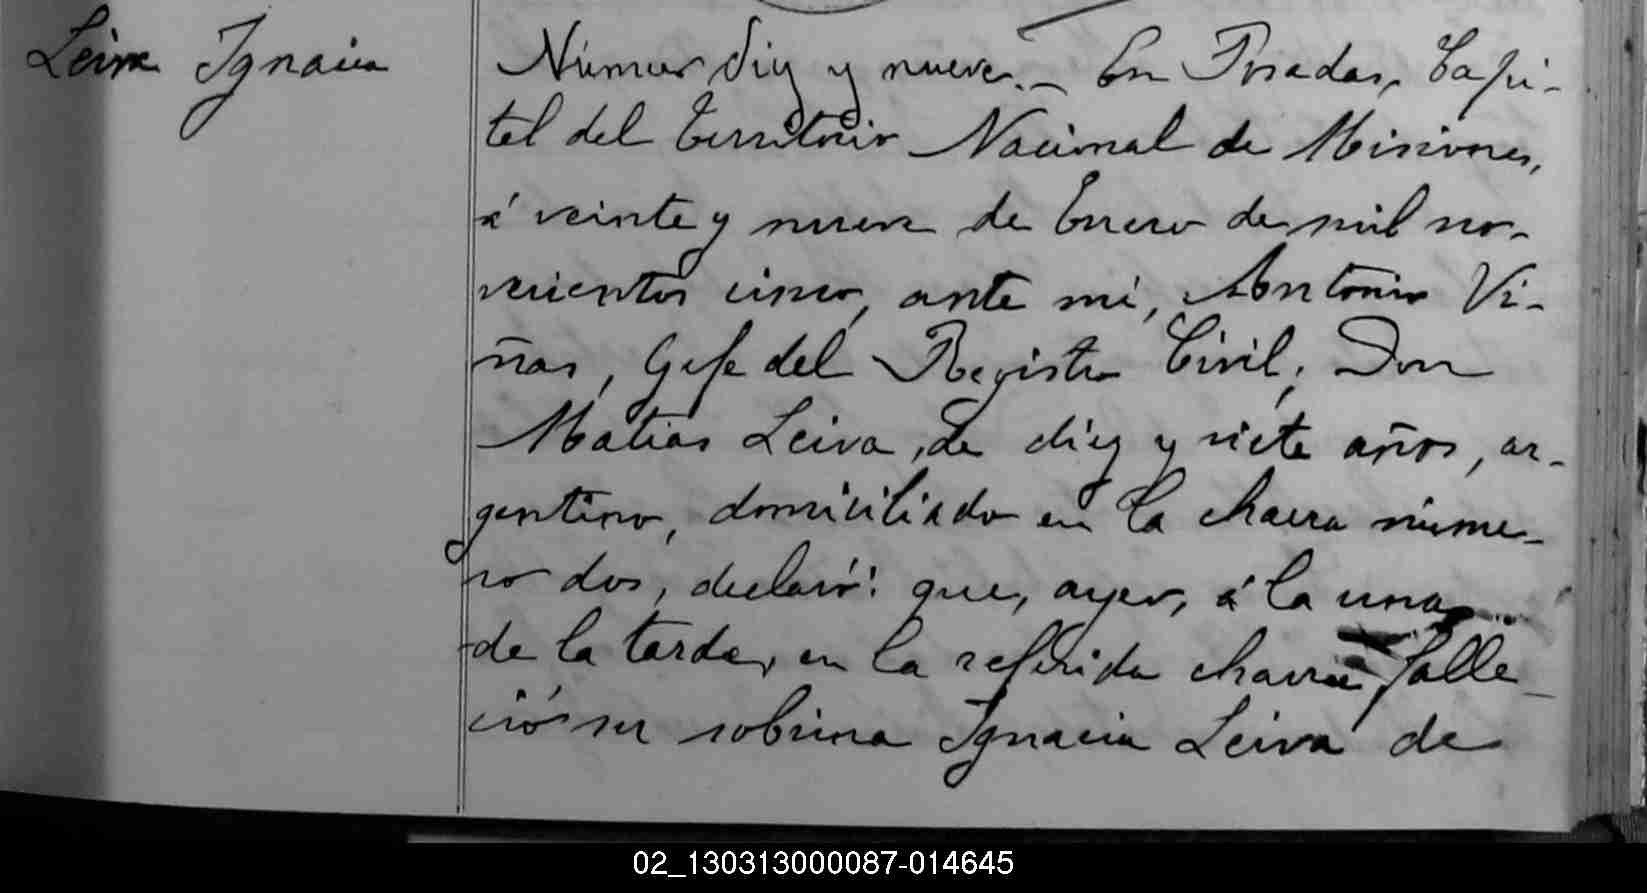 Leiva Ignacia
Número diez y nueve.- En Posadas, Capi-
tal del Territorio Nacional de Misiones,
á veinte y nueve de Enero de mil no-
vecientos cinco, ante mi, Antonio Vi-
ñas, Gefe del Registro Civil, Don
Matias Leiva, de diez y siete años, ar-
gentino, domiciliado en la chacra núme-
ro dos, declaró: que, ayer, á la una
de la tarde, en la referida chacra, falle-
ció su sobrina Ignacia Leiva de
02_130313000087-014645